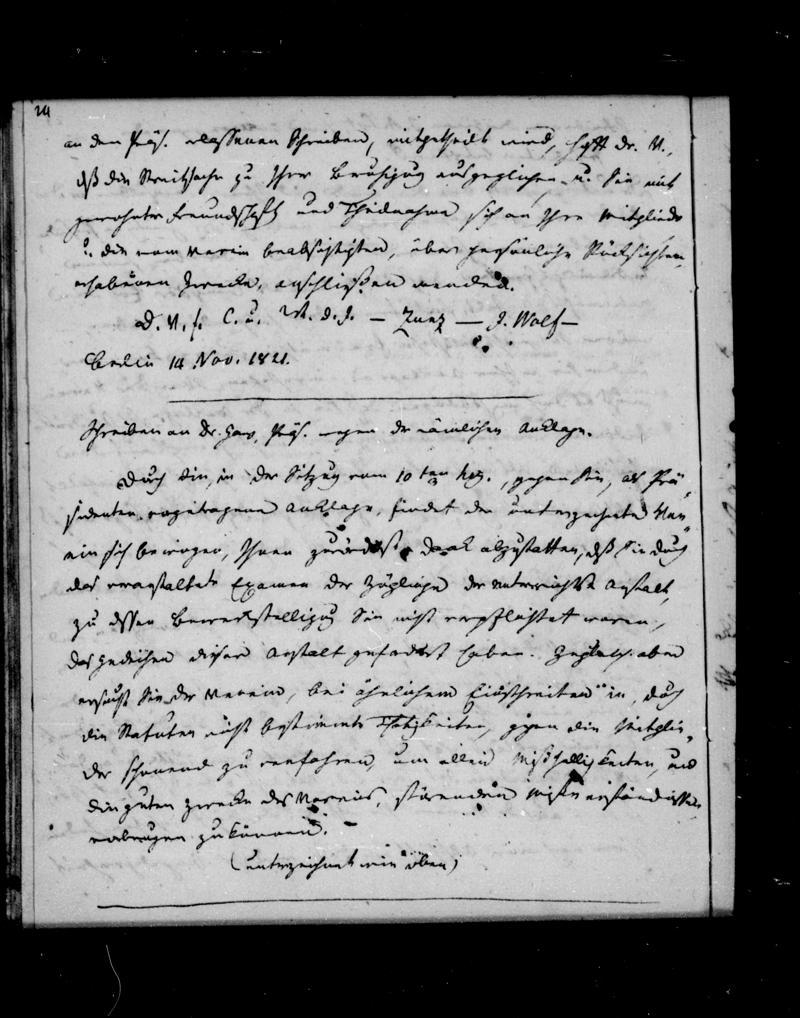 24
an den Präs. erlassenen Schreiben, mitgetheilt wird, hofft dr. V.,
daß die Streitsache zu Ihrer Beruhigung ausgeglichen u. Sie mit
gewohnter Freundschaft und Theilnahme sich an Ihre Mitglieder
u. die vom Verein beabsichtigten, über persönliche Rücksichten
erhabenen Zwecke, anschließen werden.
D. V. f. C. u. W. d. J. — Zunz — J. Wolf —
Berlin 14 Nov. 1821.
Schreiben an Dr. Gans, Präs. wegen der nämlichen Anklage.
Durch die, in der Sitzung vom 10ten huj., gegen Sie, als Prä-
sidenten vorgetragene Anklage, findet der unterzeichnete Ver-
ein sich bewogen, Ihnen zuvörderst Dank abzustatten, daß Sie durch
das veranstaltete Examen der Zöglinge der Unterrichts Anstalt,
zu dessen Bewerkstelligung Sie nicht verpflichtet waren,
das Gedeihen dieser Anstalt gefördert haben. Zugleich aber
ersucht Sie der Verein, bei ähnlichem Einschreiten in, durch
die Statuten nicht bestimmte Thätigkeiten, gegen die Mitglie-
der schonend zu verfahren, um allen Mißhelligkeiten, und
den guten Zwecke des Vereins, störenden Mißverständnissen
vorbeugen zu können. —
(unterzeichnet wie oben)